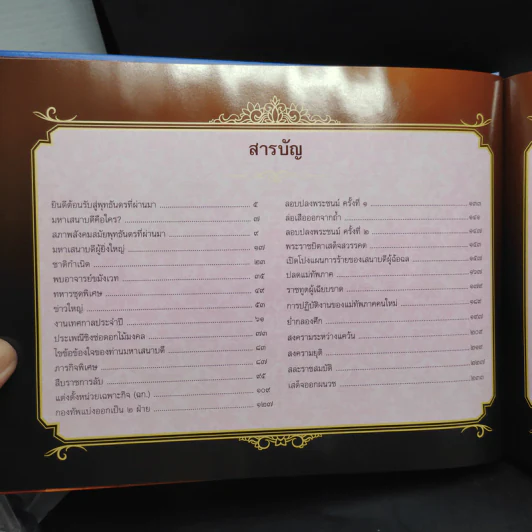 สารบัญ
ยินดีต้อนรับสู่พุทธันดรที่ผ่านมา ๕
มหาเสนาบดีคือใคร? ๗
สภาพสังคมสมัยพุทธันดรที่ผ่านมา ๙
มหาเสนาบดีผู้ยิ่งใหญ่ ๑๗
ชาติกำเนิด ๒๓
พบอาจารย์ขมังเวท ๓๕
ทหารชุดพิเศษ ๔๙
ข่าวใหญ่ ๕๓
งานเทศกาลประจำปี ๖๑
ประเพณีชิงช่อดอกไม้มงคล ๗๓
ไขข้อข้องใจของท่านมหาเสนาบดี ๘๓
ภารกิจพิเศษ ๘๗
สืบราชการลับ ๙๕
แต่งตั้งหน่วยเฉพาะกิจ (ฉก.) ๑๐๙
กองทัพแบ่งออกเป็น ๒ ฝ่าย ๑๒๗
ลอบปลงพระชนม์ ครั้งที่ ๑
ล่อเสือออกจากถ้ำ
ลอบปลงพระชนม์ ครั้งที่ ๒
พระราชบิดาเสด็จสวรรคต
เปิดโปงแผนการร้ายของเสนาบดีผู้ฉ้อฉล
ปลดแม่ทัพภาค
ราชทูตผู้เฉียบขาด
การปฏิบัติงานของแม่ทัพภาคคนใหม่
ย่ำกลองศึก
สงครามระหว่างแคว้น ๒๐๙
สงครามยุติ
สละราชสมบัติ
เสด็จออกผนวช